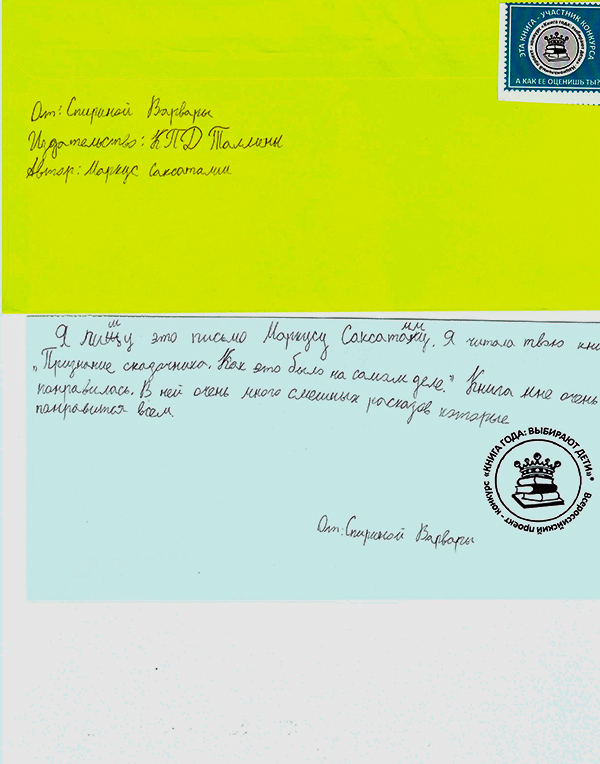 ЭТА КНИГА - УЧАСТНИК КОНКУРСА
А КАК ЕЕ ОЦЕНИШЬ ТЫ?
От: Спириной Варвары
Издательство: КПД Таллинн
Автор: Маркус Саксатамм
Я пишу это письмо Маркусу Саксатамму. Я читала твою кни
„Признание сказочника. Как это было на самам деле.“ Книга мне очень
понравилась. В ней очень много смешных расказов каторые
понравится всем
КНИГА ГОДА: ВЫБИРАЮТ ДЕТИ
Всероссийский проект - конкурс
От: Спириной Варвары